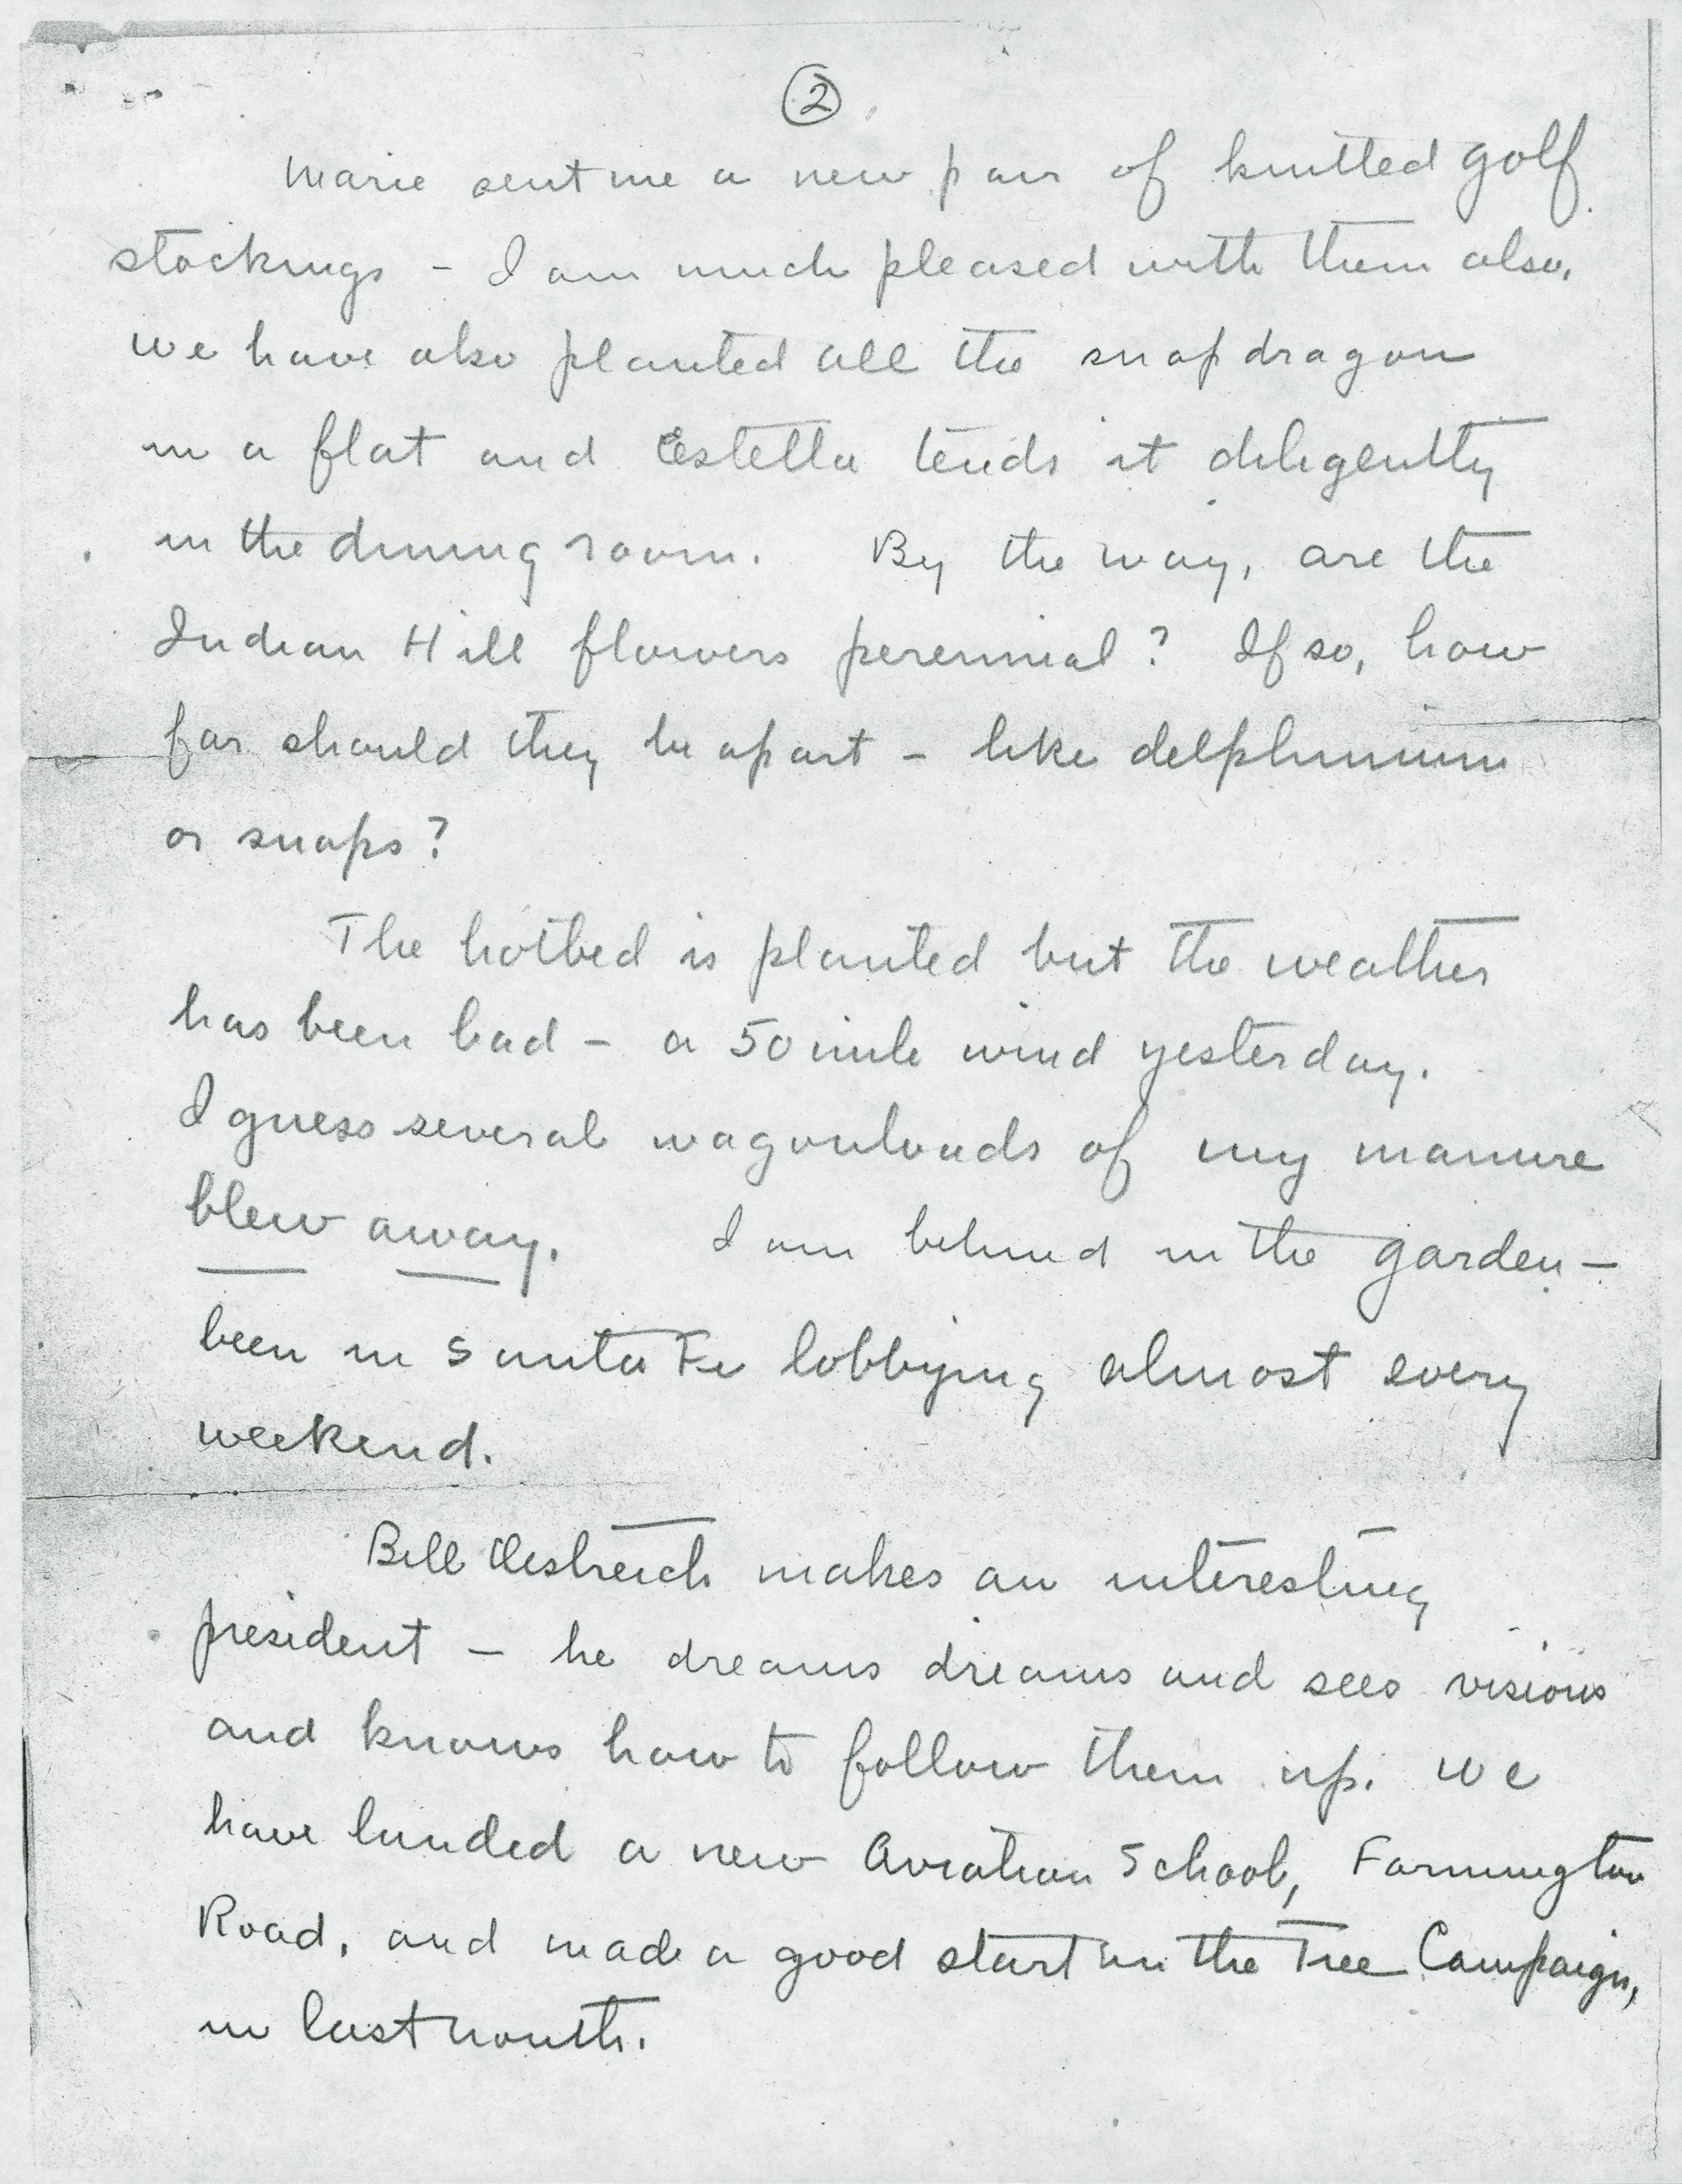 ②
Marie sent me a new pair of knitted golf
stockings - I am much pleased with them also.
we have also planted all the snapdragon
in a flat and Estella tends it deligently
in the dining room. By the way, are the
Indian Hill flowers perennial? If so, how
far should they be apart - like delphinium
or snaps?
The hotbed is planted but the weather
has been bad - a 50 mile wind yesterday.
I guess several wagonloads of my manure
blew away. I am behind in the garden -
been in Santa Fe lobbying almost every
weekend.
Bill Oestreich makes an interesting
president - he dreams dreams and sees visions
and knows how to follow them up. We
have landed a new Aviation School, Farmington
Road, and made a good start in the Tree Campaign,
in last month.